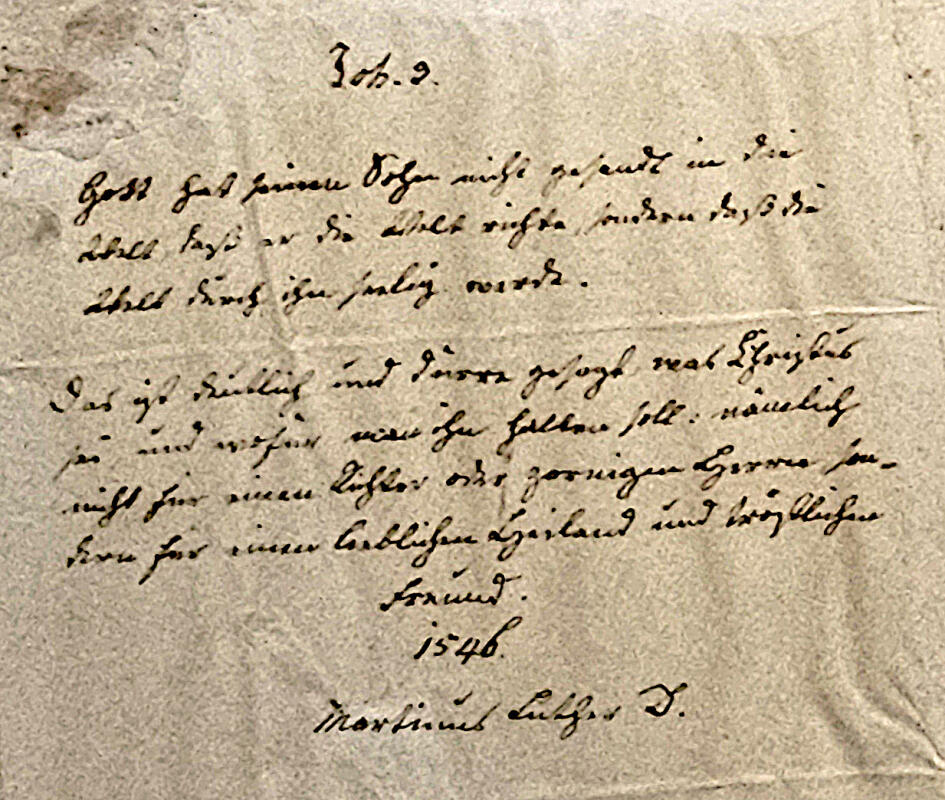 Joh. 3.
Gott hat seinen Sohn nicht gesandt in die
Welt daß er die Welt richte, sondern daß die
Welt durch ihn seelig werde.
Das ist deutlich und dürre gesagt was Christus
sei und wofür man ihn halten soll: nämlich
nicht für einen Richter oder zornigen Herrn son-
dern für einen lieblichen Heiland und tröstlichen
Freund.
1546.
Martinus Luther D.